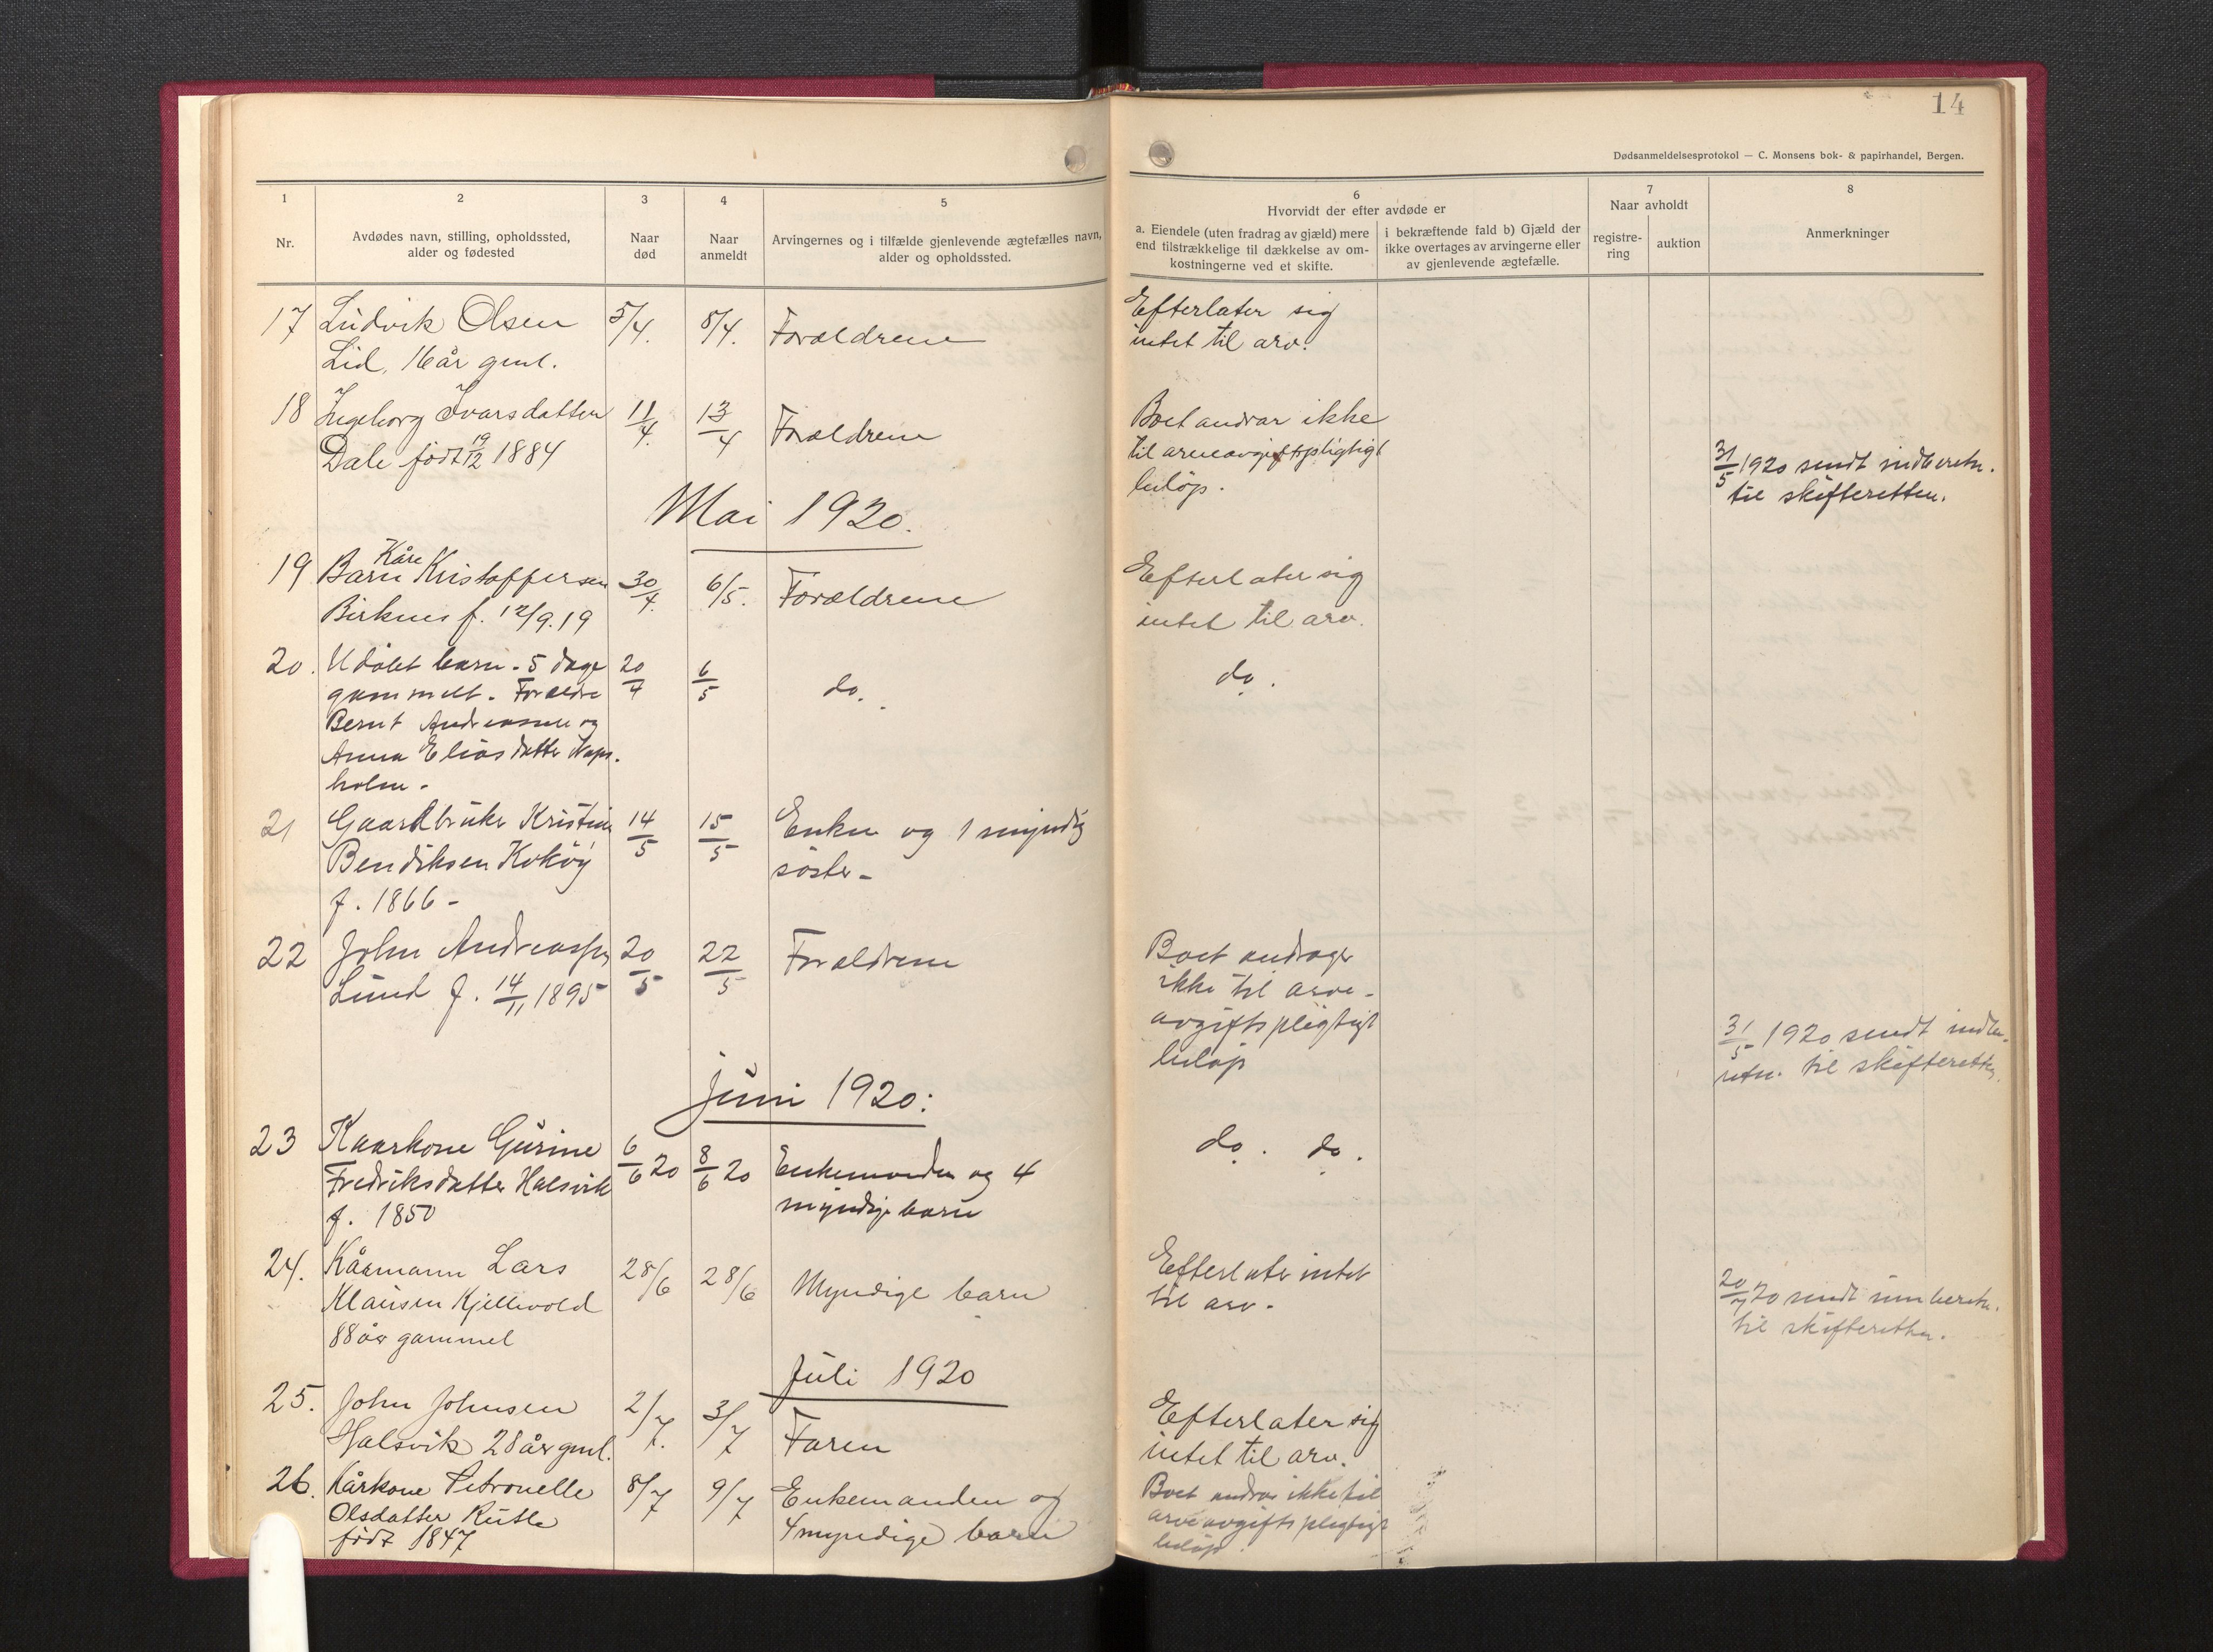 14
Dødsanmeldelsesprotokol — C. Monsens bok- & papirhandel, Bergen.
1
Nr.
2
Avdødes navn, stilling, opholdssted,
alder og fødested
3
Naar
død
4
Naar
anmeldt
5
Arvingernes og i tilfælde gjenlevende ægtefælles navn,
alder og opholdssted.
6
Hvorvidt der efter avdøde er
a. Eiendele (uten fradrag av gjæld) mere
end tilstrækkelige til dækkelse av om-
kostningerne ved et skifte.
i bekræftende fald b) Gjæld der
ikke overtages av arvingerne eller
av gjenlevende ægtefælle.
7
Naar avholdt
registre-
ring
auktion
8
Anmerkninger
17 Ludvik Olsen 5/4. 8/4. Forældrene Efterlater sig
Lid, 16 år gml. intet til arv.
18 Ingeborg Ivarsdatter 11/4. 13/4 Forældrene Boet andrar ikke
Dale født 19/12 1884 til arveavgiftspligtigt
beløp.
31/5 1920 sendt indberetn.
til skifteretten.
Mai 1920.
Kåre
19 Barn Kristoffersen 30/4. 6/5. Forældrene Efterlater sig
Birknes f. 12/9.19 intet til arv.
20. Udøbt barn. 5 dage 20/4 6/5 do. do.
gammelt. Forældre
Bernt Andreassen og
Anna Eliasdatter
holm.
21 Gaardbruker Kristian 14/5 15/5 Enken og 1 myndig
Bendiksen søster.
f. 1866 -
22 John Andreassen 20/5 22/5 Forældrene Boet andrager
Lund f. 14/11 1895 ikke til arve-
avgiftspligtigt
beløp
31/5 1920 sendt indbe-
retn. til skifteretten.
Juni 1920:
23 Kaarkone Gurine 6/6 20 8/6 20 Enkemanden og 4 do. do.
Fredriksdatter Halsvik myndige barn
f. 1850
24. Kårmann Lars 28/6 28/6 Myndige barn Efterlater intet
Klausen Kjellevold til arv.
88 år gammel
20/7 20 sendt innberetn.
til skifteretten.
Juli 1920
25. John Johnsen 2/7. 3/7 Faren Efterlater sig
Halsvik 28 år gml. intet til arv.
26. Kårkone Petronelle 8/7 9/7 Enkemanden og Boet andrar ikke til
Olsdatter Rutle 4 myndige barn arveavgiftspligtigt
født 1847 beløp.